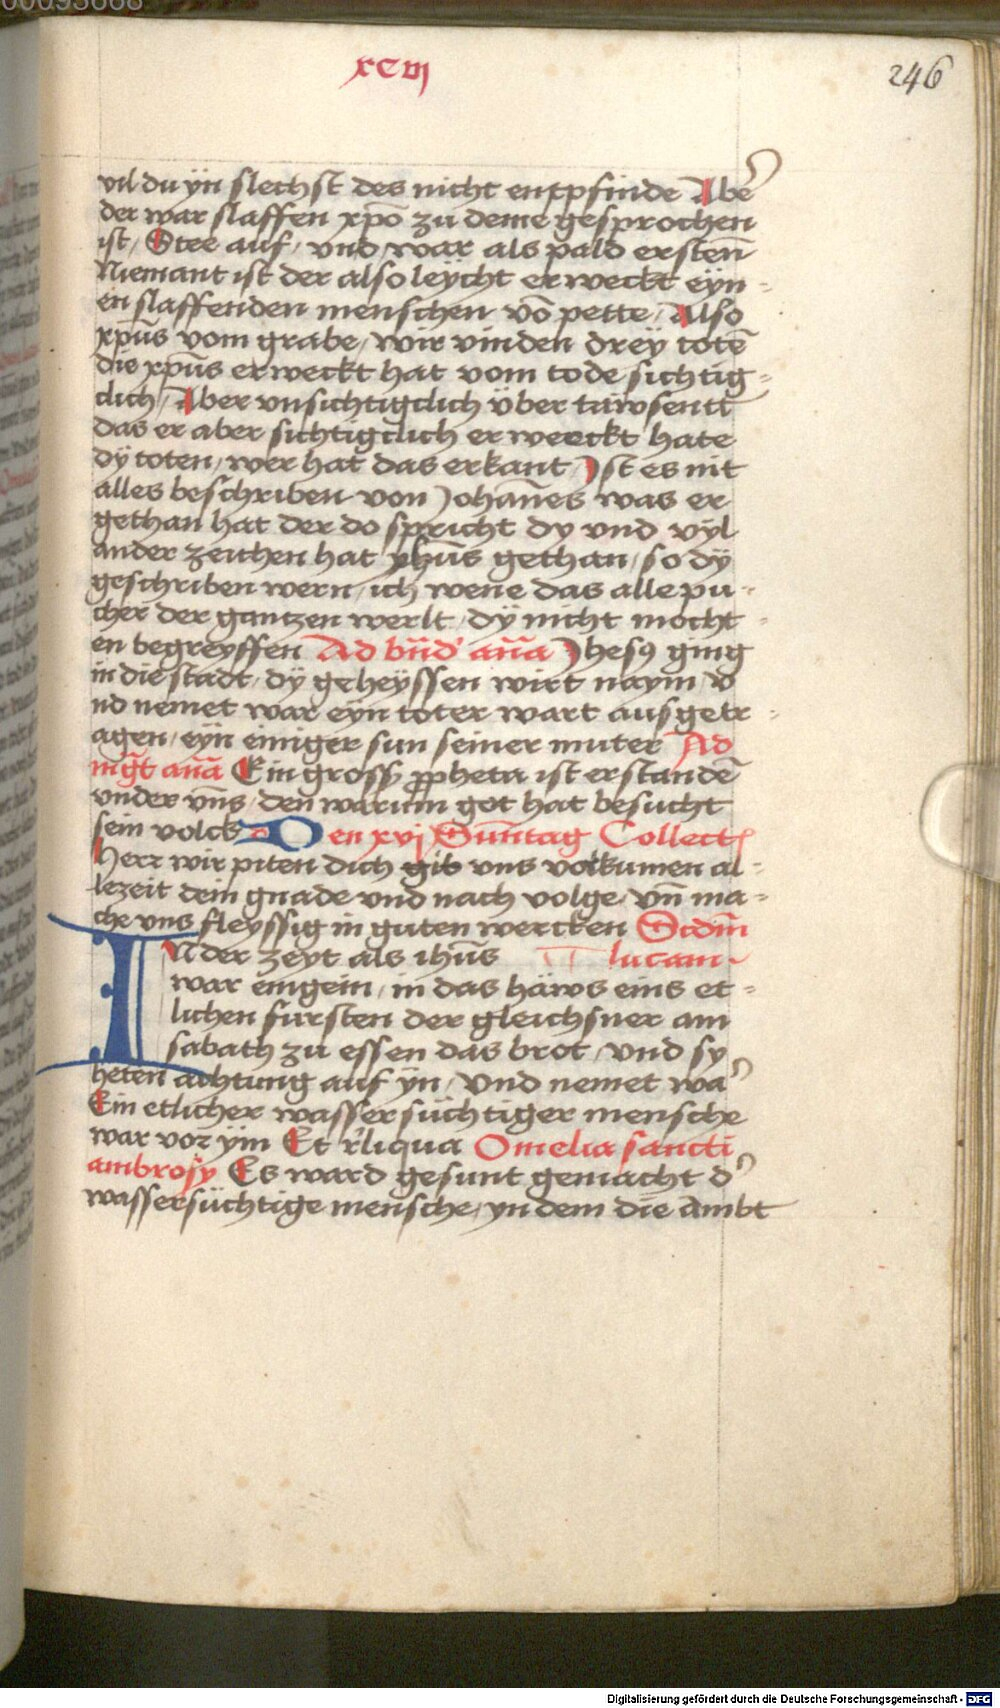 00093668
xcvj
246
vil du ÿn slechst des nicht entpfinde Aber
der war slaffen xp̄o zu deme gesprochen
ist / Stee auf / vnd war als pald ersten̄
Niemant ist der also leÿcht er weckt eÿn-
en slaffenden menschen vō pette / Also
xp̄us vom grabe / wir vinden dreÿ totē
die xp̄us erweckt hat vom tode sichtig-
clich / Aber vnsichtigclich über tawsentt
das er aber sichtigclich er weeckt hate
dÿ toten / wer hat das erkant / Ist es nit
alles beschriben von Johan̄es was er
gethan hat der do spricht dy vnd vÿl
ander zeichen hat yhūs gethan / so dÿ
geschriben wern / ich wene das alle pu-
cher der gantzen werlt / dÿ nicht mocht-
en begreyffen Ad bn̄d' an̄a Jhesꝯ ging
in die stadt / dÿ geheÿssen wirt naym v
nd nemet war eÿn toter wart ausgetr-
agen / eÿn einiger sun seiner muter Ad
mḡt an̄a Ein gross ꝓpheta ist erstandē
vnder vn̄s / den warum got hat besucht
sein volck Den xvj Sun̄tag Collect
Herr wir piten dich gib vns volkumen al-
lezeit dein gnade vnd nach volge / vn̄ ma-
che vns fleyssig in guten wercken Scdm̄
IN der zeyt als ihūs lucam
war eingein / in das häws eins et-
lichen fursten der gleichsner am
sabath zu essen das brot / vnd sy
heten achtung auf ÿn / vnd nemet war
Ein etlicher wassersüchtiger mensche
war vor ÿm Et r̄liqua Omelia sancti
ambrosy Es ward gesunt gemacht d'
wassersüchtige mensche / yn dem die Ambt
Digitalisierung gefördert durch die Deutsche Forschungsgemeinschaft - DFG